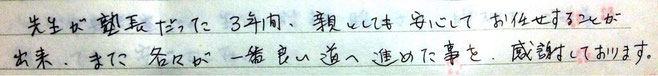 先生が塾長だった3年間、親としても安心してお任せすることが
出来、また各々が一番良い道へ進めた事を、感謝しております。